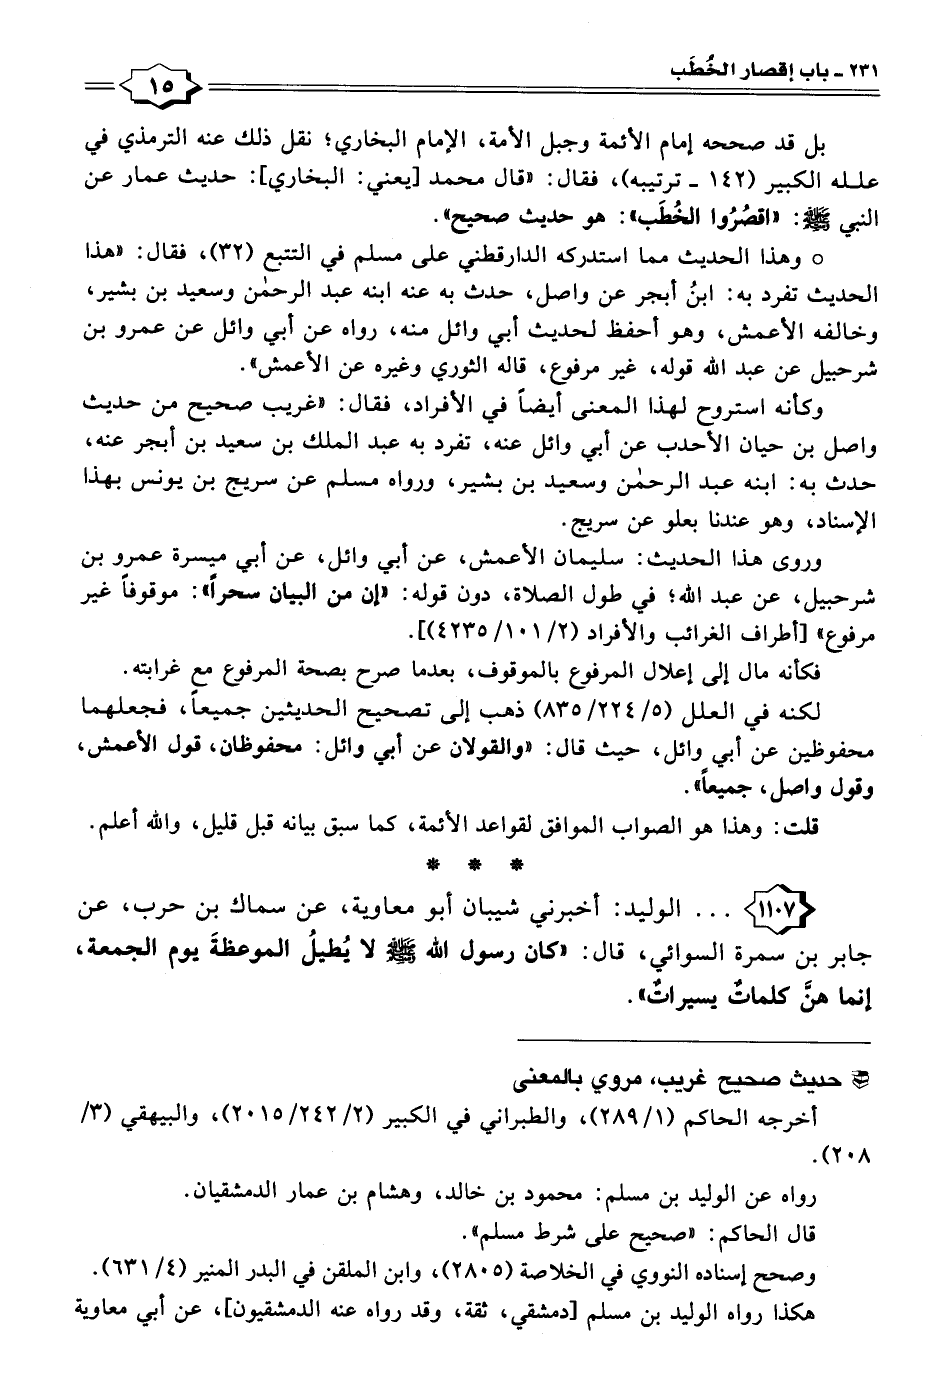 ٢٣١ - باب إقصار الخُطَب
١٥
بل قد صححه إمام الأئمة وجبل الأمة، الإمام البخاري؛ نقل ذلك عنه الترمذي في
علله الكبير (١٤٢ - ترتيبه)، فقال: «قال محمد [يعني: البخاري]: حديث عمار عن
النبي ﷺ: «اقصُرُوا الخُطَب»: هو حديث صحيح».
○ وهذا الحديث مما استدركه الدارقطني على مسلم في التتبع (٣٢)، فقال: «هذا
الحديث تفرد به: ابنُ أبجر عن واصل، حدث به عنه ابنه عبد الرحمٰن وسعيد بن بشير،
وخالفه الأعمش، وهو أحفظ لحديث أبي وائل منه، رواه عن أبي وائل عن عمرو بن
شرحبيل عن عبد الله قوله، غير مرفوع، قاله الثوري وغيره عن الأعمش».
وكأنه استروح لهذا المعنى أيضاً في الأفراد، فقال: «غريب صحيح من حديث
واصل بن حيان الأحدب عن أبي وائل عنه، تفرد به عبد الملك بن سعيد بن أبجر عنه،
حدث به: ابنه عبد الرحمٰن وسعيد بن بشير، ورواه مسلم عن سريج بن يونس بهذا
الإسناد، وهو عندنا بعلو عن سريج.
وروى هذا الحديث: سليمان الأعمش، عن أبي وائل، عن أبي ميسرة عمرو بن
شرحبيل، عن عبد الله؛ في طول الصلاة، دون قوله: «إن من البيان سحراً»: موقوفاً غير
مرفوع» [أطراف الغرائب والأفراد (٢/ ١٠١/ ٤٢٣٥)].
فكأنه مال إلى إعلال المرفوع بالموقوف، بعدما صرح بصحة المرفوع مع غرابته.
لكنه في العلل (٥/ ٢٢٤/ ٨٣٥) ذهب إلى تصحيح الحديثين جميعاً، فجعلهما
محفوظين عن أبي وائل، حيث قال: «والقولان عن أبي وائل: محفوظان، قول الأعمش،
وقول واصل، جميعاً».
قلت: وهذا هو الصواب الموافق لقواعد الأئمة، كما سبق بيانه قبل قليل، والله أعلم.
* * *
١١٠٧ ... الوليد: أخبرني شيبان أبو معاوية، عن سماك بن حرب، عن
جابر بن سمرة السوائي، قال: «كان رسول الله ﷺ لا يُطيلُ الموعظةَ يوم الجمعة،
إنما هنَّ كلماتٌ يسيراتٌ».
حديث صحيح غريب، مروي بالمعنى
أخرجه الحاكم (١/ ٢٨٩)، والطبراني في الكبير (٢/ ٢٤٢/ ٢٠١٥)، والبيهقي (٣/
٢٠٨).
رواه عن الوليد بن مسلم: محمود بن خالد، وهشام بن عمار الدمشقيان.
قال الحاكم: «صحيح على شرط مسلم».
وصحح إسناده النووي في الخلاصة (٢٨٠٥)، وابن الملقن في البدر المنير (٤/ ٦٣١).
هكذا رواه الوليد بن مسلم [دمشقي، ثقة، وقد رواه عنه الدمشقيون]، عن أبي معاوية